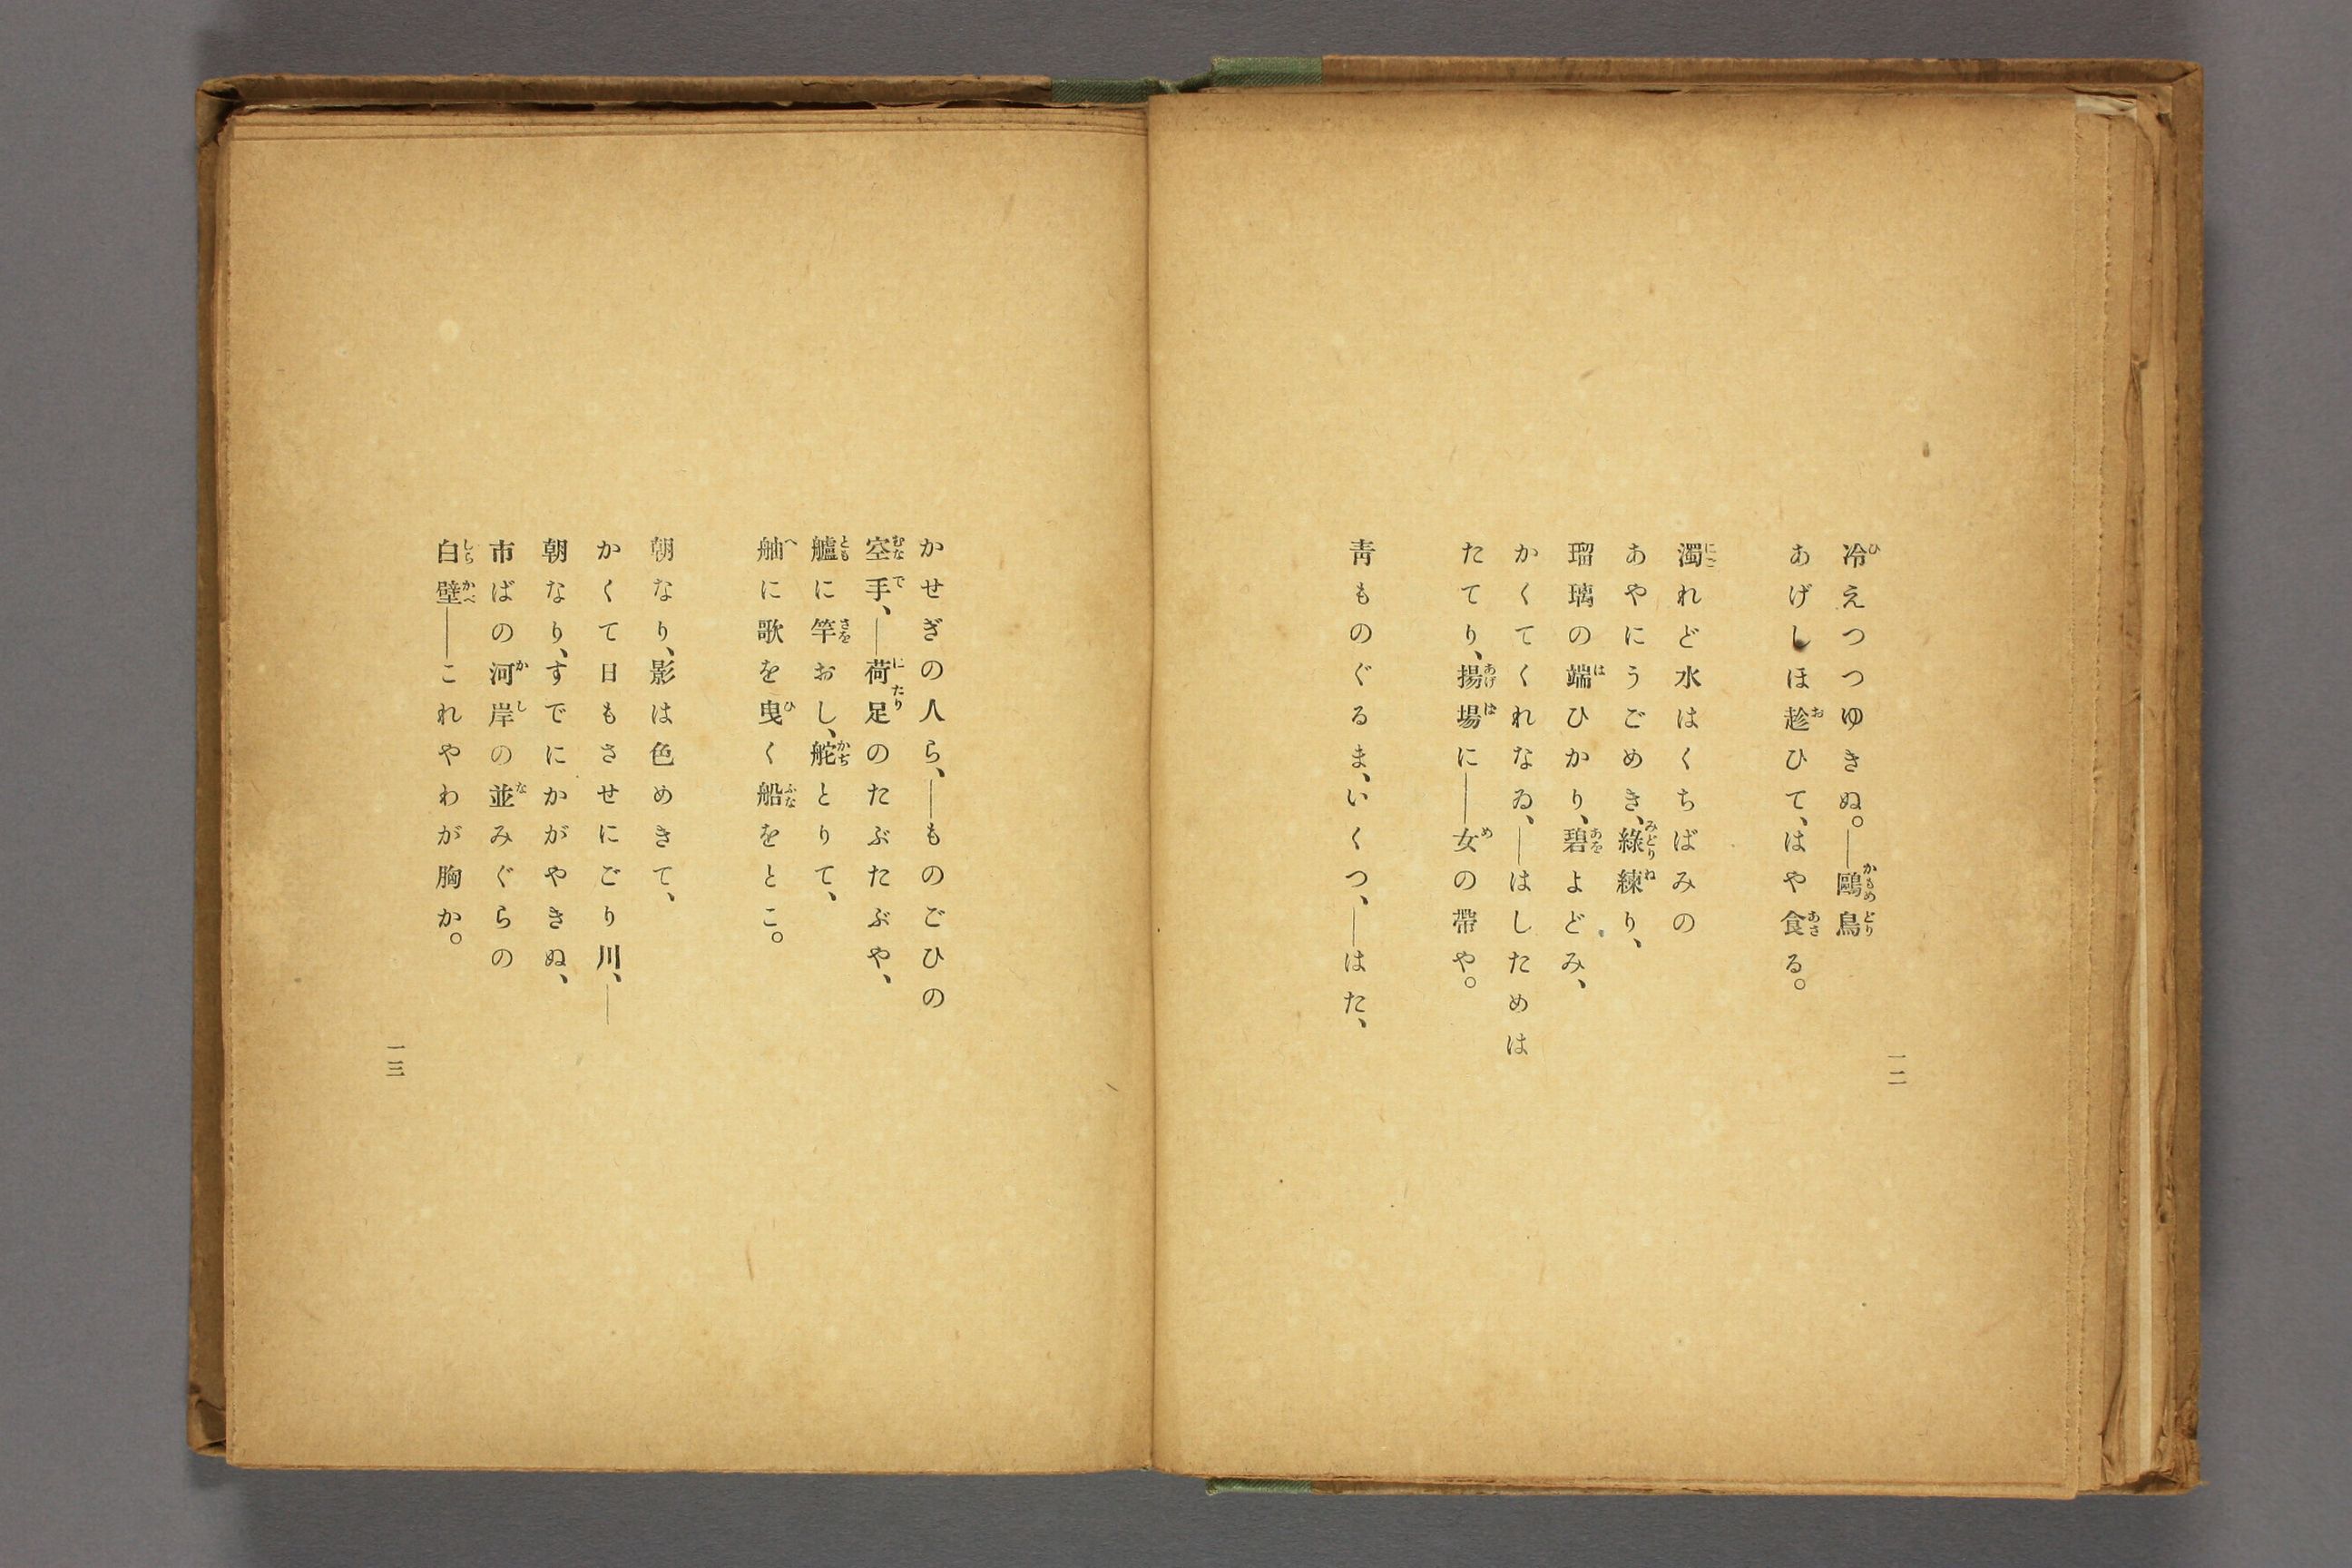 冷えつつゆきぬ。―鷗鳥
あげしほ趁ひて、はや食る。
濁れど水はくちばみの
あやにうごめき、綠練り、
瑠璃の端ひかり、碧よどみ、
かくてくれなゐ、―はしためは
たてり、揚場に―女の帶や。
靑ものぐるま、いくつ、―はた、
一二
かせぎの人ら、―ものごひの
空手、―荷足のたぶたぶや、
艫に竿おし、舵とりて、
舳に歌を曳く船をとこ。
朝なり、影は色めきて、
かくて日もさせにごり川、―
朝なり、すでにかがやきぬ、
市ばの河岸の並みぐらの
白壁―これやわが胸か。
一三